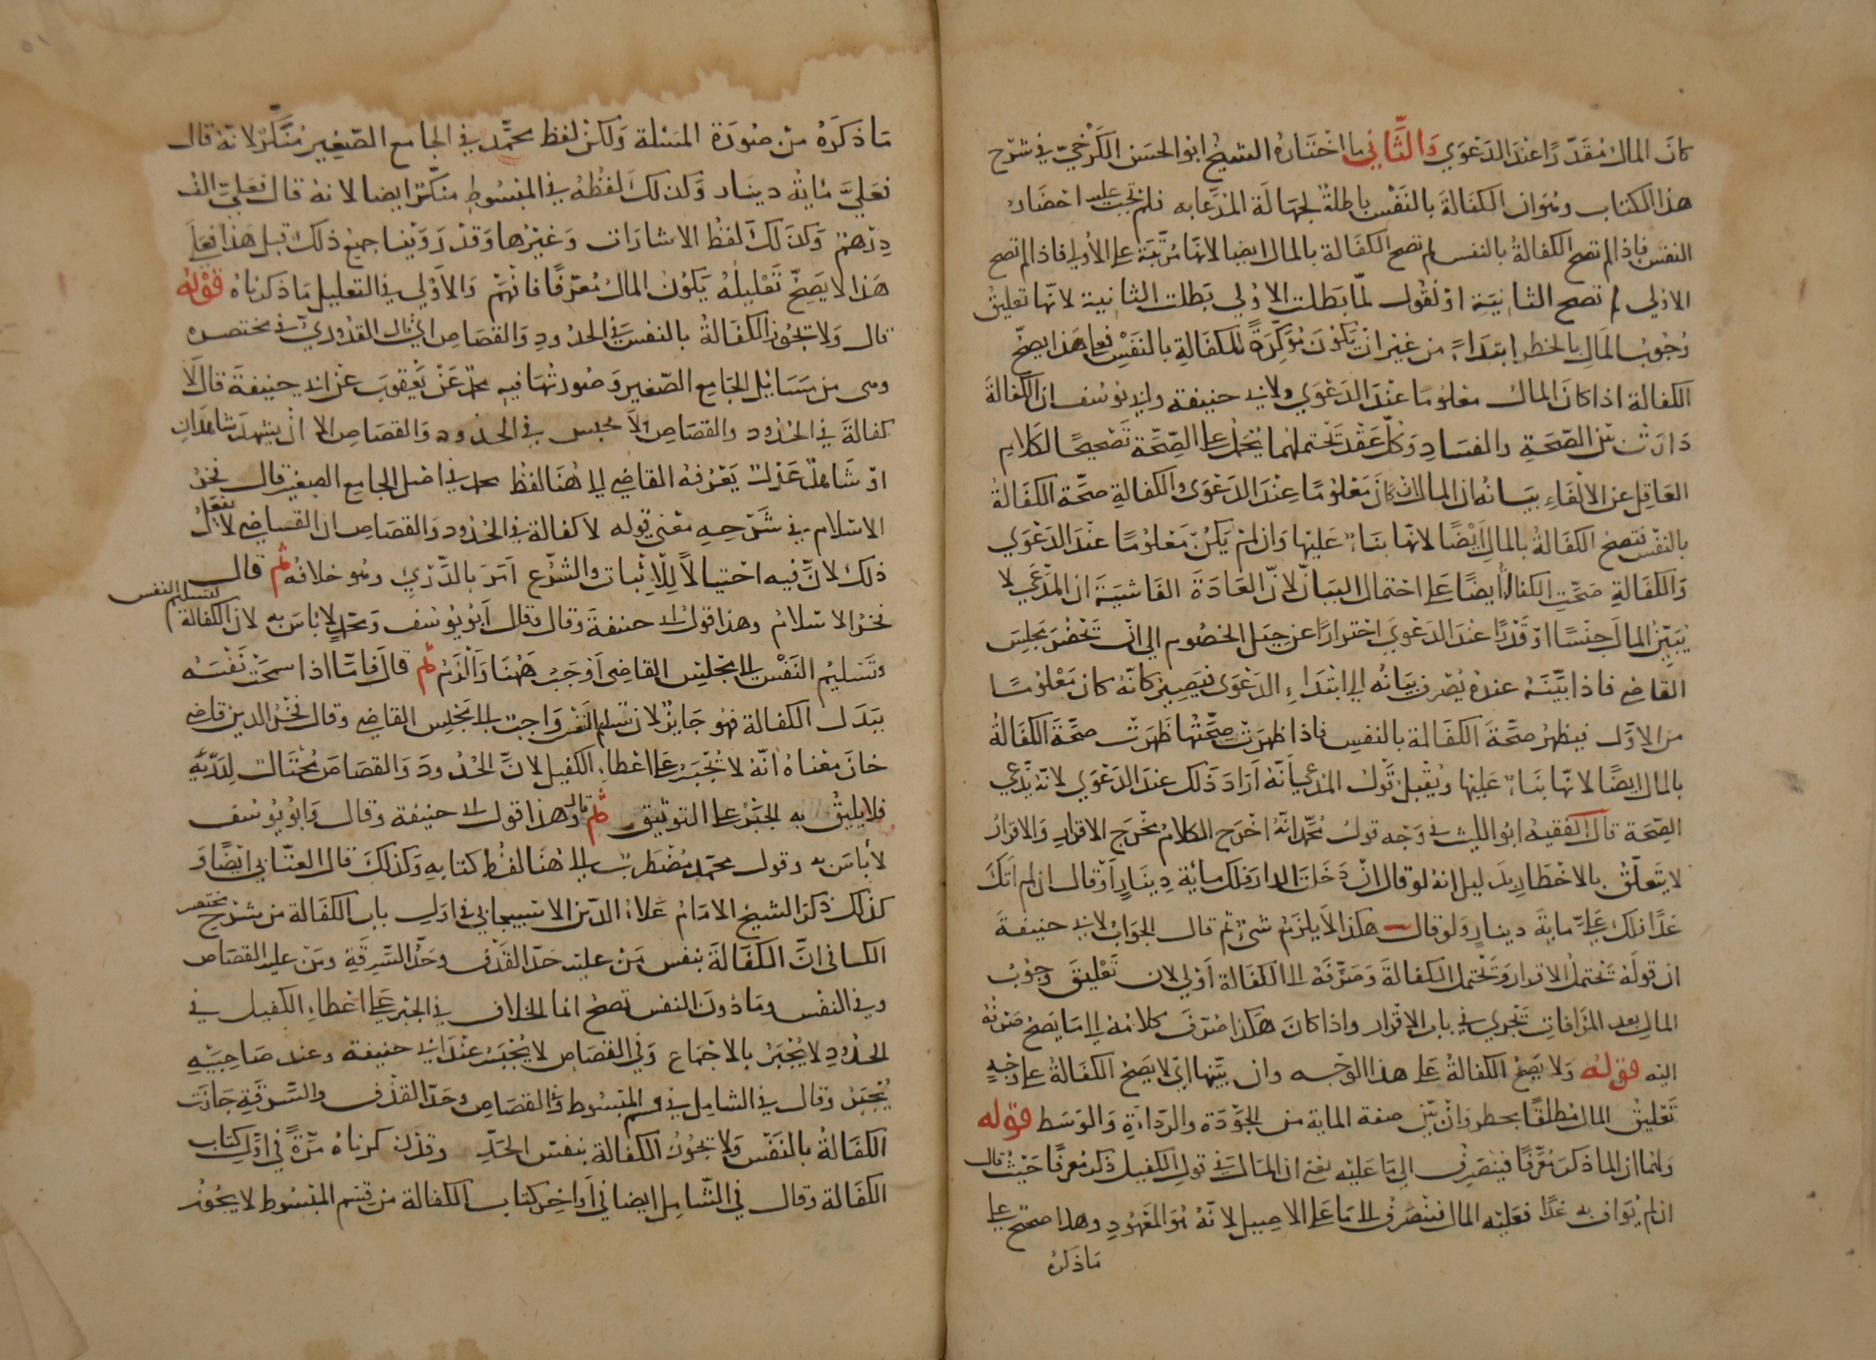 كان المال مقدرا عند الدعوي والثاني ما اختاره الشيخ ابو الحسن الكرخي في شرح
هذا الكتاب وهو ان الكفالة بالنفس باطلة لجهالة المدعا به فلم تجب عليه احضار
النفس فاذا لم تصح الكفالة بالنفس لم تصح الكفالة بالمال ايضا لانها مرتبة على الاولى فاذا لم تصح
الاولى لم تصح الثانية او نقول لما بطلت الاولى بطلت الثانية لانها تعليق
وجوب المال بالخطر ابتداء من غير ان تكون مؤكدة للكفالة بالنفس فعلى هذا يصح
الكفالة اذا كان المال معلوما عند الدعوي ولابي حنيفة وابي يوسف ان الكفالة
دارت بين الصحة والفساد وكل عقد تحتملهما يحمل على الصحة تصحيحا لكلام
العاقل عن الالغاء بيانه ان المال ان كان معلوما عند الدعوى والكفالة صحة الكفالة
بالنفس فتصح الكفالة بالمال ايضا لانها بناء عليها وان لم يكن معلوما عند الدعوي
والكفالة صحت الكفالة ايضا على احتمال البيان لان العادة الفاشية ان المدعي لا
يبين المال جنسا او قدرا عند الدعوي احترازا عن حيل الخصوم الى ان تحضر مجلس
القاضي فاذا بينه عنده يصرف بيانه الى ابتداء الدعوى فيصير كانه كان معلوما
من الاول فيظهر صحة الكفالة بالنفس فاذا ظهرت صحتها ظهرت صحة الكفالة
بالمال ايضا لانها بناء عليها ويقبل قول المدعي انه اراد ذلك عند الدعوي لانه يدعي
الصحة قال الفقيه ابو الليث في وجه قول محمد انه اخرج الكلام مخرج الاقرار والاقرار
لا يتعلق بالاخطار بدليل انه لو قال ان دخلت الدار فلك مائة دينار او قال ان لم اتك
غدا فلك علي ماية دينار ولو قال هكذا لا يلزم شئ ثم قال الجواب لابي حنيفة
ان قوله تحتمل الاقرار وتحتمل الكفالة وصرفه الى الكفالة اولى لان تعليق وجوب
المال بعد المرافات تجري في باب الاقرار واذا كان هكذا صرف كلامه الى ما يصح صرفه
اليه قوله ولا يصح الكفالة على هذا الوجه وان بينها اي لا يصح الكفالة على وجه
تعليق المال مطلقا بخطر وان بين صفة الماية من الجودة والرداءة والوسط قوله
ولهما ان المال ذكر معرفا فينصرف الى ما عليه يعني ان المال في قول الكفيل ذكر معرفا حيث قال
ان لم يواف به غدا فعليه المال فينصرف الى ما على الاصيل لانه هو المعهود وهذا صحيح على
ما ذكره
ما ذكره من صورة المسئلة ولكن لفظ محمد في الجامع الصغير منكر لانه قال
فعلي مائة دينار وكذلك لفظه في المبسوط منكر ايضا لانه قال فعلي الف
درهم وكذلك لفظ الاشارات وغيرها وقد روينا جميع ذلك قبل هذا فعلى
هذا لا يصح تعليله بكون المال معرفا فافهم والاولى في التعليل ما ذكرناه قوله
قال ولا تجوز الكفالة بالنفس في الحدود والقصاص اي قال القدوري في مختصره
وهي من مسائل الجامع الصغير وصورتها فيه محمد عن يعقوب عن ابي حنيفة قال لا
كفالة في الحدود والقصاص ولا حبس في الحدود والقصاص الا ان يشهد شاهدان
او شاهد عدل يعرفه القاضي الى هنا لفظ محمد في اصل الجامع الصغير قال فخر
الاسلام في شرحه معنى قوله لا كفالة في الحدود والقصاص ان القاضي لا يفعل
ذلك لان فيه احتيالا للاثبات والشرع امر بالدرئ وهو خلافه ثم قال
فخر الاسلام وهذا قول ابي حنيفة وقال وقال ابو يوسف ومحمد لا باس به لان الكفالة لتسليم النفس
وتسليم النفس الى مجلس القاضي اوجب ههنا والزم ثم قال فاما اذا سمحت نفسه
ببدل الكفالة فهو جايز لان تسليم النفس واجب الى مجلس القاضي وقال فخر الدين قاضي
خان معناه انه لا تجبر على اعطاء الكفيل لان الحدود والقصاص محتال لدرئه
فلا يليق به الجبر على التوثيق ثم قال وهذا قول ابي حنيفة وقال وابو يوسف
لا باس به وقول محمد مضطرب الى هنا لفظ كتابه وكذلك قال العتابي ايضا و
كذلك ذكر الشيخ الامام علاء الدين الاسبيجابي في اول باب الكفالة من شرح مختصر
الكافي ان الكفالة بنفس من عليه حد القذف وحد السرقة ومن عليه القصاص
وفي النفس وما دون النفس تصح انما الخلاف في الجبر على اعطاء الكفيل في
الحدود لا يجبر بالاجماع وفي القصاص لا يجبر عند ابي حنيفة وعند صاحبيه
يجبر وقال في الشامل في قسم المبسوط في القصاص وحد القذف والسرقة جازت
الكفالة بالنفس ولا تجوز الكفالة بنفس الحد وقد ذكرناه مرة في اول كتاب
الكفالة وقال في الشامل ايضا في اواخر كتاب الكفالة من قسم المبسوط لا يجوز